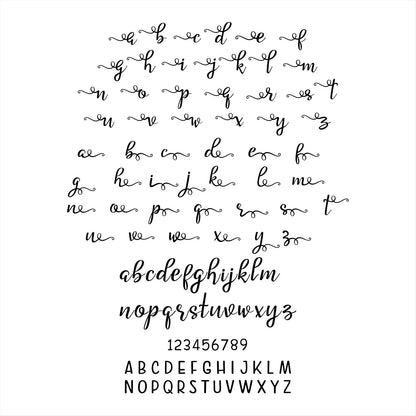 a b c d e f
g h i j k l m
n o p q r s t
u v w x y z
a b c d e f
g h i j k l m
n o p q r s t
u v w x y z
abcdefghijklm
nopqrstuvwxyz
123456789
ABCDEFGHIJKLM
NOPQRSTUVWXYZ